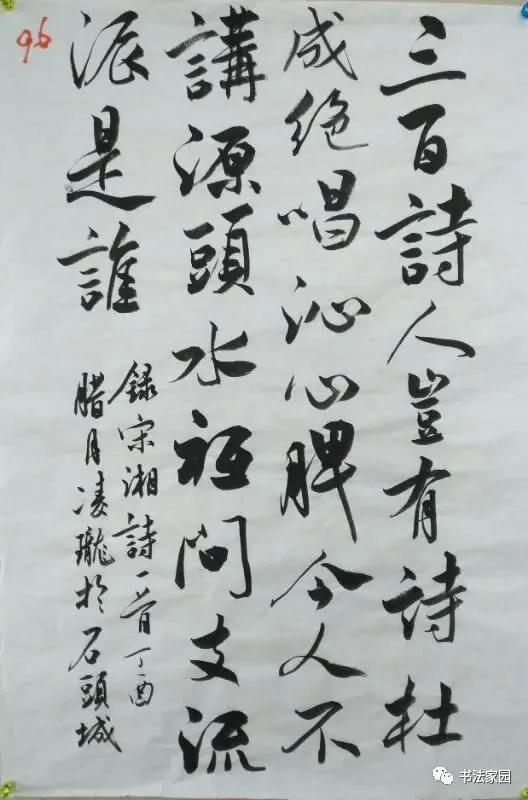 三百詩人豈有詩杜
成絶唱沁心脾今人不
講源頭水祗問支流
派是誰
録宋湘詩一首丁酉
腊月凌瓏於石頭城
96
书法家园